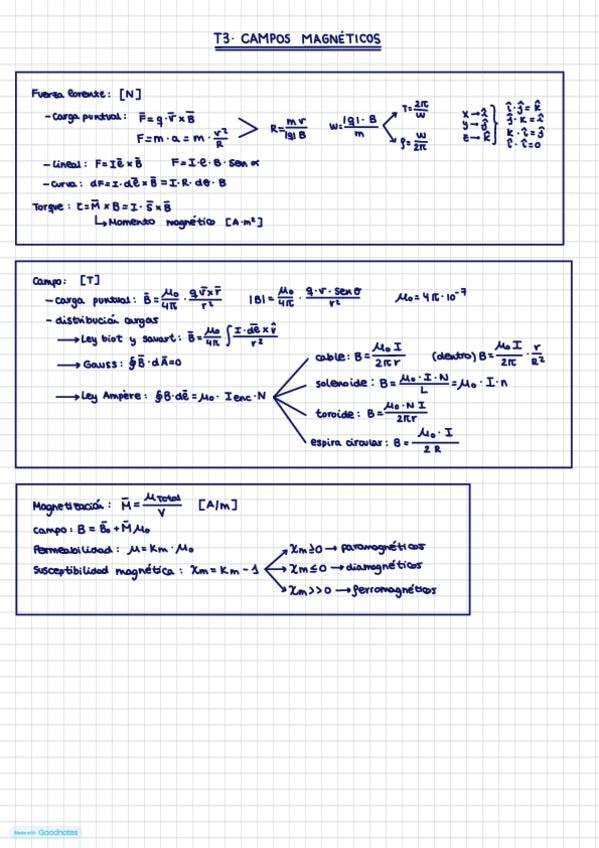 T3· CAMPOS MAGNÉTICOS
Fuerza lorente: [N]
- Carga puntual: F̄ = q · v̄ × B̄
F = m · a = m · v²/R
R = mv/|q|B
W = |q|·B/m
T = 2π/W
f = W/2π
x → î
y → ĵ
z → k̂
î · ĵ = k̂
ĵ · k = î
k · î = ĵ
î · î = 0
- Lineal: F = Iē × B̄ F = I · e · B · sen α
- Curva: dF = I · dē × B̄ = I · R · dθ · B
Torque: τ = M̄ × B = I · s̄ × B̄
↳ Momento magnético [A·m²]
Campo: [T]
- carga puntual: B̄ = μ₀/4π · q v̄ × r̄/r² |B| = μ₀/4π · q · v · sen θ/r² μ₀ = 4π · 10⁻⁷
- distribución cargas
→ Ley biot y savart: B̄ = μ₀/4π ∫ I · dē × r̂/r²
→ Gauss: ∮ B̄ · dĀ = 0
→ Ley Ampère: ∮ B · dē = μ₀ · Ienc · N
cable: B = μ₀ I/2π r (dentro) B = μ₀ I/2π · r/R²
solenoide: B = μ₀ · I · N/L = μ₀ · I · n
toroide: B = μ₀ · N I/2π r
espira circular: B = μ₀ · I/2 R
Magnetización: M̄ = μ total/V [A/m]
campo: B = B̄₀ + M̄ μ₀
Permeabilidad: μ = Km · μ₀
Susceptibilidad magnética: χm = Km - 1
χm ≥ 0 → paramagnéticos
χm ≤ 0 → diamagnéticos
χm >> 0 → ferromagnéticos
Made with Goodnotes